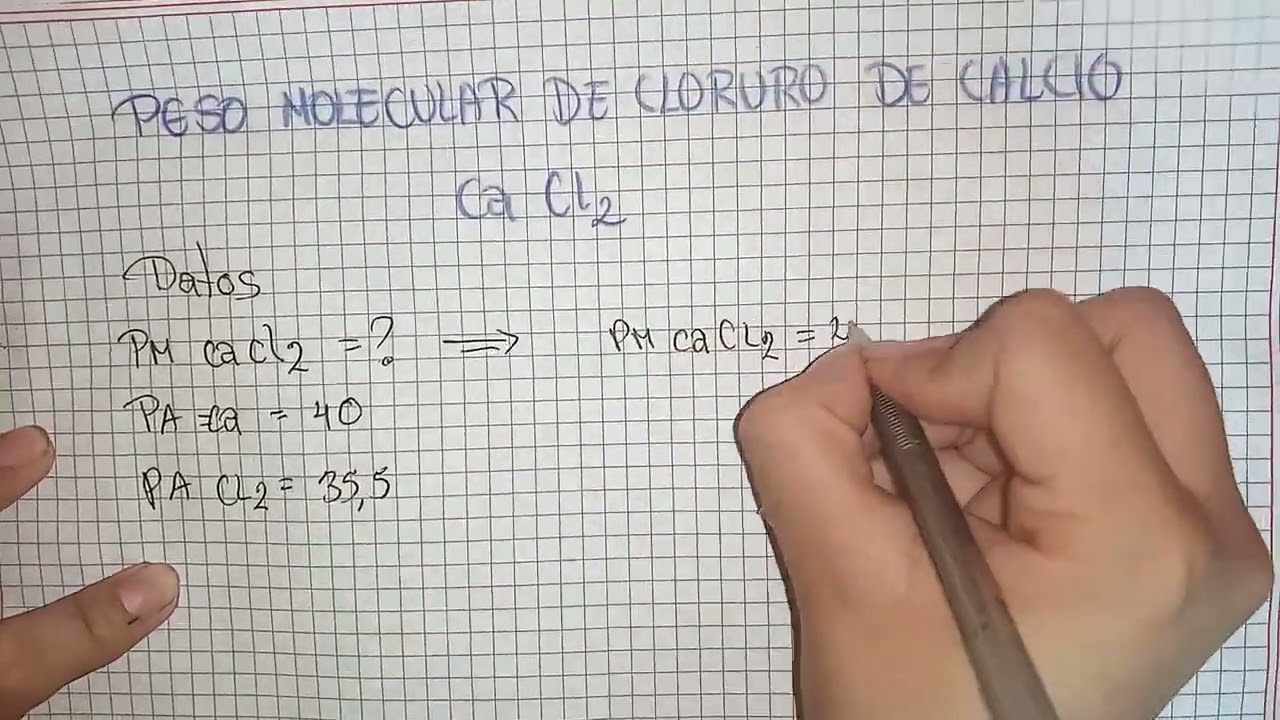 PESO MOLECULAR DE CLORURO DE CALCIO
Ca Cl2
Datos
PM caCl2 = ? ⟹ PM caCl2 = 2
PA ca = 40
PA Cl2 = 35,5